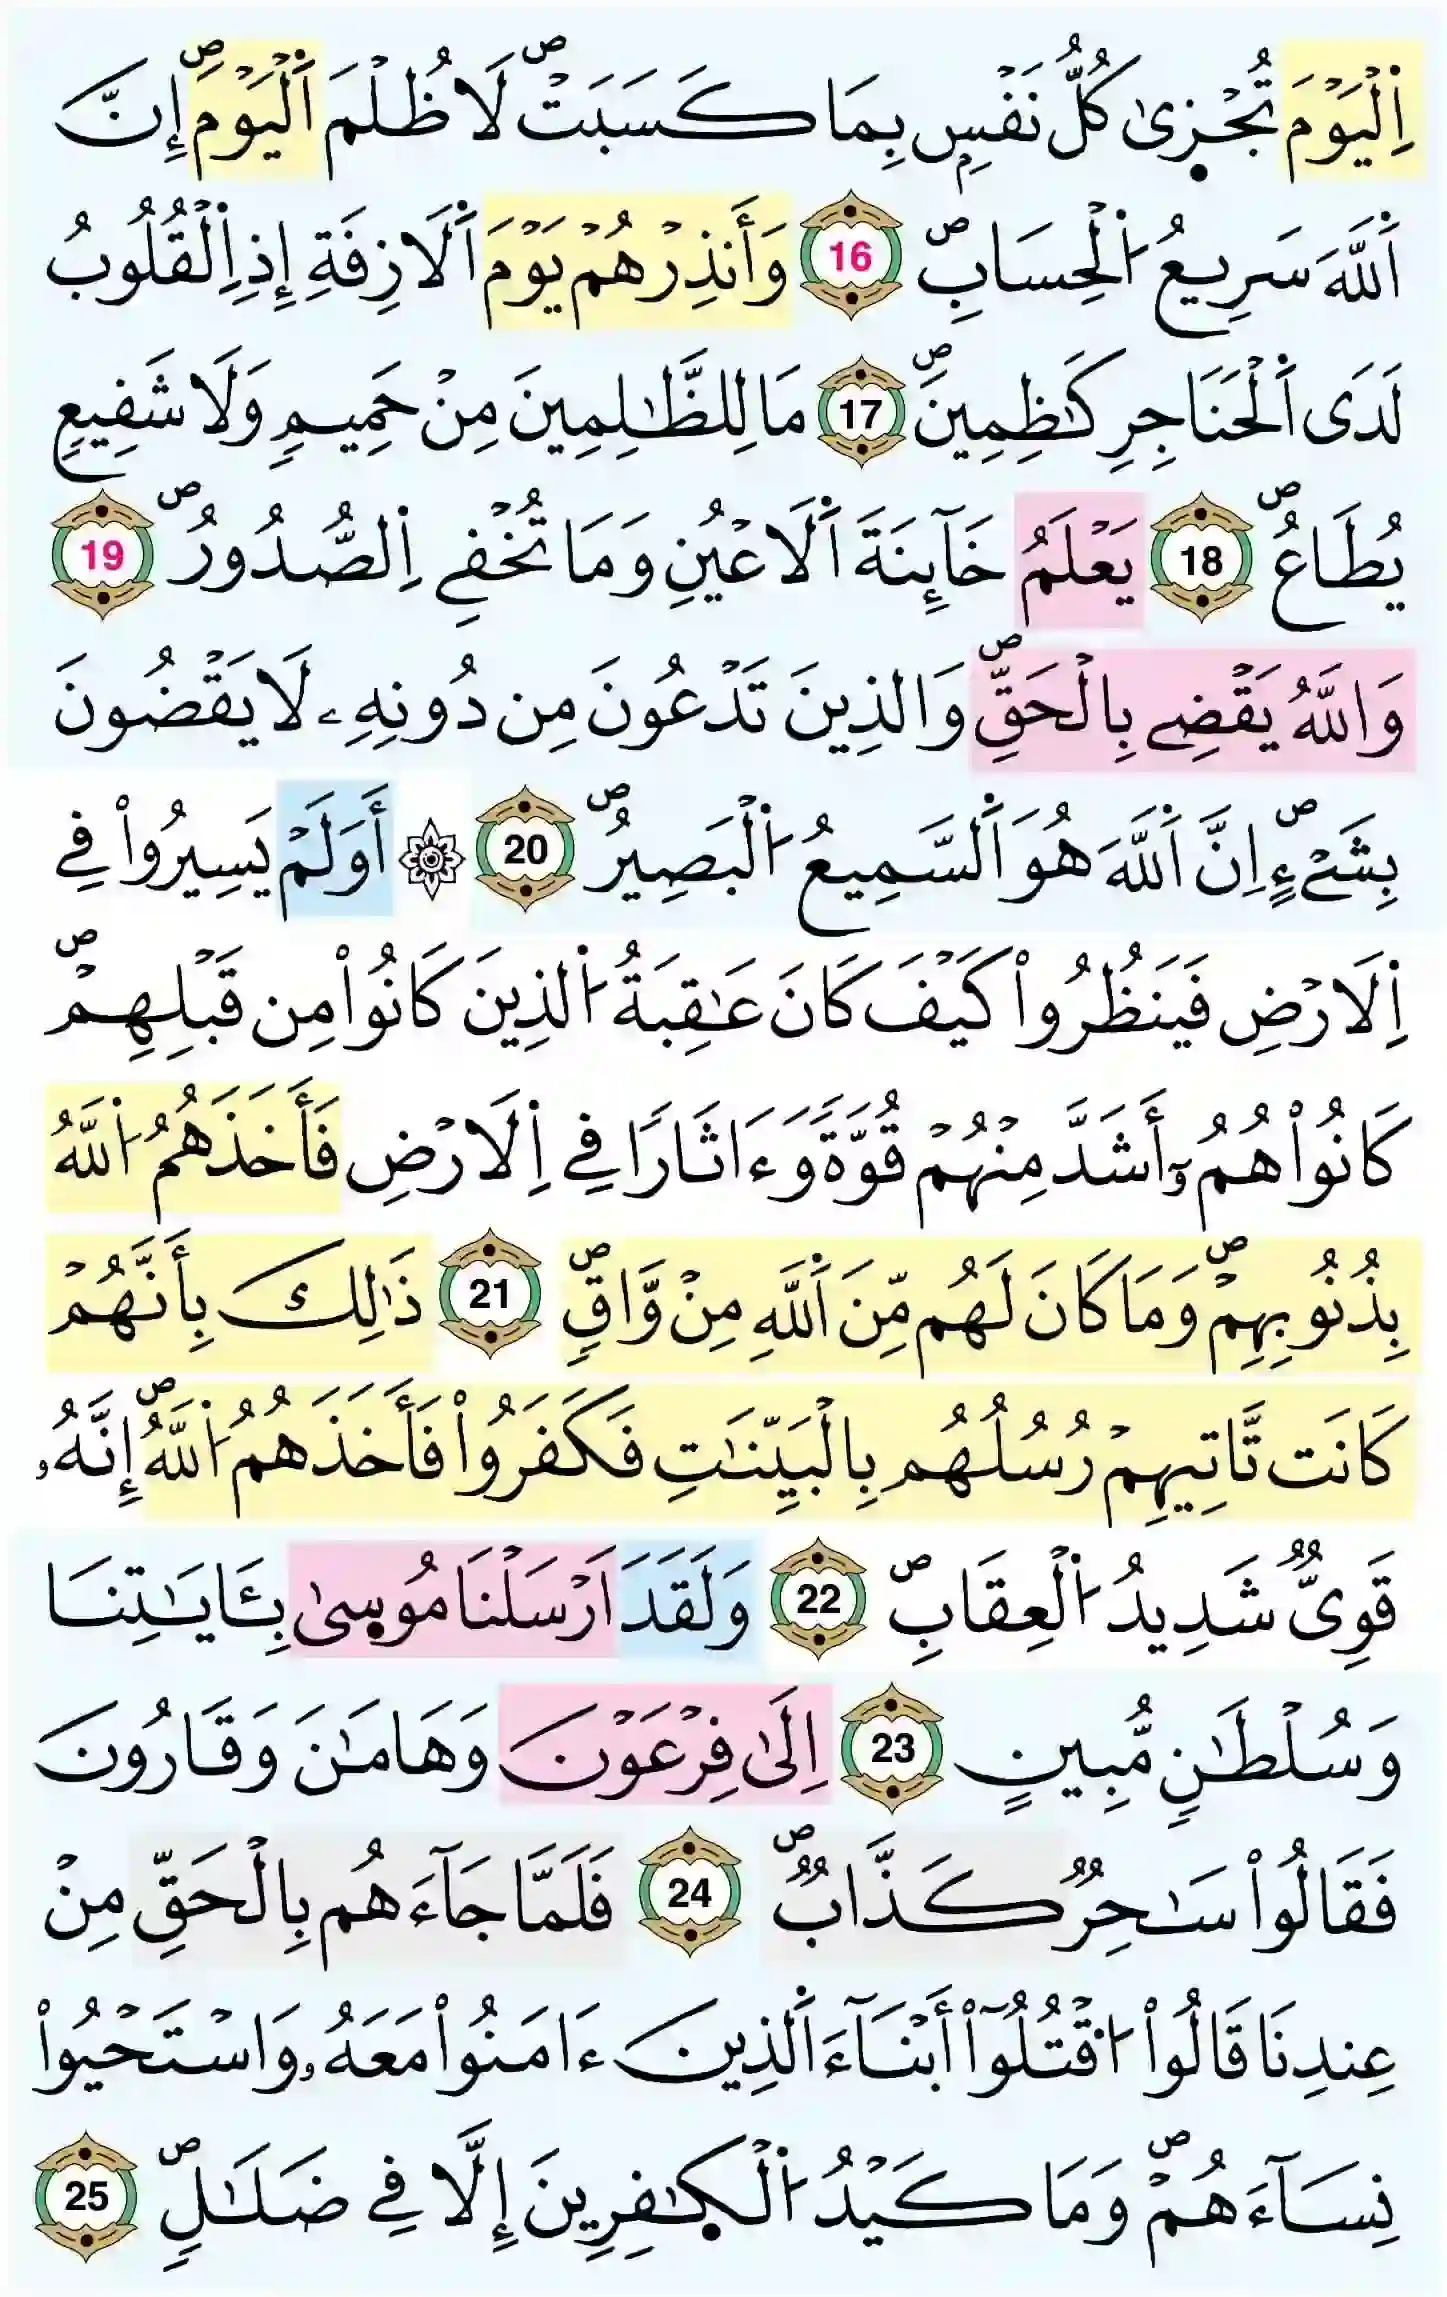 اِ۬لْيَوْمَ تُجْز۪ىٰ كُلُّ نَفْسِۢ بِمَا كَسَبَتْۖ لَا ظُلْمَ اَ۬لْيَوْمَۖ إِنَّ
اَ۬للَّهَ سَرِيعُ اُ۬لْحِسَابِۖ 16 وَأَنذِرْهُمْ يَوْمَ اَ۬لَازِفَةِ إِذِ اِ۬لْقُلُوبُ
لَدَى اَ۬لْحَنَاجِرِ كَٰظِمِينَۖ 17 مَا لِلظَّٰلِمِينَ مِنْ حَمِيمٖ وَلَا شَفِيعٖ
يُطَاعُۖ 18 يَعْلَمُ خَآئِنَةَ اَ۬لَاعْيُنِ وَمَا تُخْفِے اِ۬لصُّدُورُۖ 19
وَاللَّهُ يَقْضِے بِالْحَقِّۖ وَالذِينَ تَدْعُونَ مِن دُونِهِۦ لَا يَقْضُونَ
بِشَےْءٍۖ اِنَّ اَ۬للَّهَ هُوَ اَ۬لسَّمِيعُ اُ۬لْبَصِيرُۖ 20 ۞ أَوَلَمْ يَسِيرُواْ فِے
اِ۬لَارْضِ فَيَنظُرُواْ كَيْفَ كَانَ عَٰقِبَةُ اُ۬لذِينَ كَانُواْ مِن قَبْلِهِمْۖ
كَانُواْ هُمُۥٓ أَشَدَّ مِنْهُمْ قُوَّةٗ وَءَاثَارٗا فِے اِ۬لَارْضِ فَأَخَذَهُمُ اُ۬للَّهُ
بِذُنُوبِهِمْۖ وَمَا كَانَ لَهُم مِّنَ اَ۬للَّهِ مِنْ وَّاقٖۖ 21 ذَٰلِكَ بِأَنَّهُمْ
كَانَت تَّاتِيهِمْ رُسُلُهُم بِالْبَيِّنَٰتِ فَكَفَرُواْ فَأَخَذَهُمُ اُ۬للَّهُۖ إِنَّهُۥ
قَوِيّٞ شَدِيدُ اُ۬لْعِقَابِۖ 22 وَلَقَدَ اَرْسَلْنَا مُوس۪ىٰ بِـَٔايَٰتِنَا
وَسُلْطَٰنٖ مُّبِينٍ 23 اِلَىٰ فِرْعَوْنَ وَهَامَٰنَ وَقَارُونَ
فَقَالُواْ سَٰحِرٞ كَذَّابٞۖ 24 فَلَمَّا جَآءَهُم بِالْحَقِّ مِنْ
عِندِنَا قَالُواْ اُ۟قْتُلُوٓاْ أَبْنَآءَ اَ۬لذِينَ ءَامَنُواْ مَعَهُۥ وَاسْتَحْيُواْ
نِسَآءَهُمْۖ وَمَا كَيْدُ اُ۬لْكٰ۪فِرِينَ إِلَّا فِے ضَلَٰلٖۖ 25